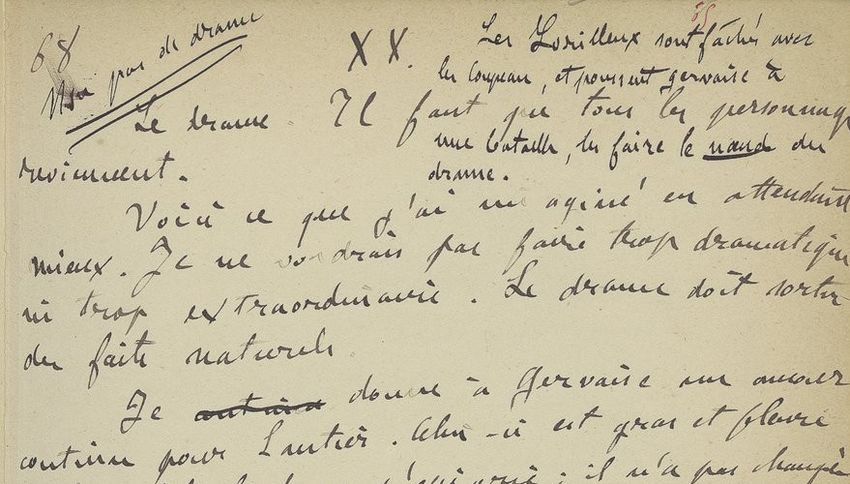 68
Non pas de drame
65
XX.
Les Lorilleux sont fâchés avec
les Coupeau, et poussent Gervaise à
une bataille, les faire le nœud du
drame.
Le drame. Il faut que tous les personnages
reviennent.
Voici ce que j'ai imaginé en attendant
mieux. Je ne voudrais pas faire trop dramatique
ni trop extraordinaire. Le drame doit sortir
des faits naturels.
Je donne à Gervaise un amour
continu pour Lantier. Celui-ci est gras et fleuri
il n'a pas changé